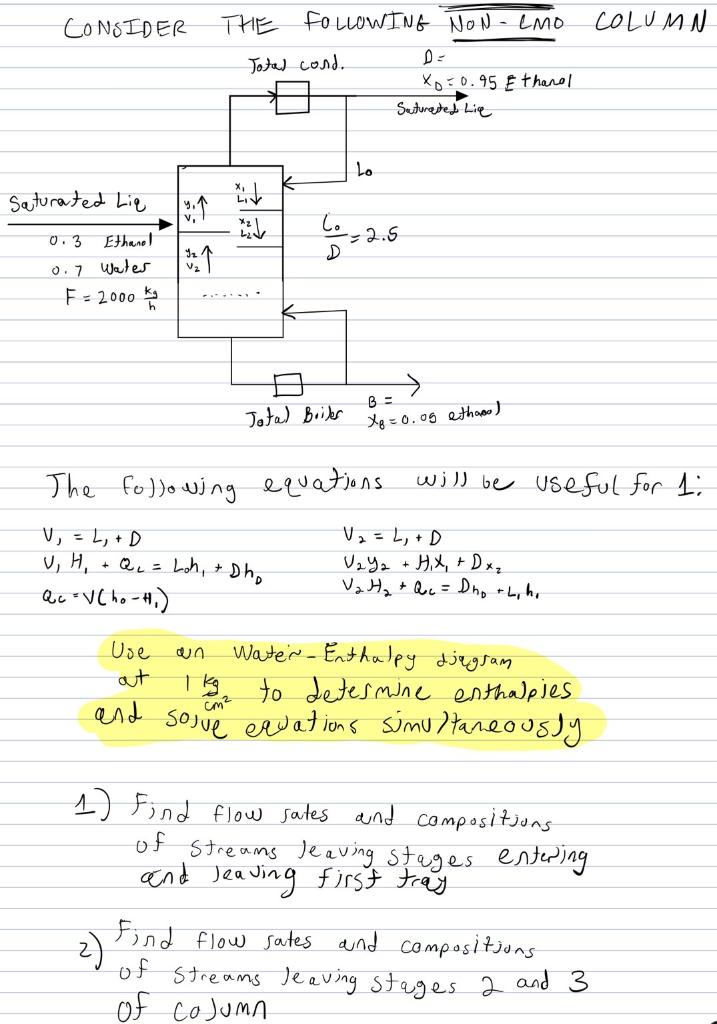 CONSIDER THE FOLLOWING NON-CMO COLUMN
Total cond.
D=
X_D = 0.95 Ethanol
Saturated Liq
L_0
Saturated Liq
0.3 Ethanol
0.7 Water
F = 2000 kg/h
y_1 V_1
x_1 L_1
x_2 L_2
y_2 V_2
.......
L_0/D = 2.5
Total Boiler
B =
X_B = 0.05 ethanol
The following equations will be useful for 1:
V_1 = L_1 + D
V_1 H_1 + Q_c = L_0 h_1 + D h_D
Q_c = V(h_0 - H_1)
V_2 = L_1 + D
V_2 y_2 + H_1 X_1 + D x_2
V_2 H_2 + Q_c = D h_D + L_1 h_1
Use an Water-Enthalpy diagram
at 1 kg/cm² to determine enthalpies
and solve equations simultaneously
1) Find flow rates and compositions
of streams leaving stages entering
and leaving first tray
2) Find flow rates and compositions
of streams leaving stages 2 and 3
of column